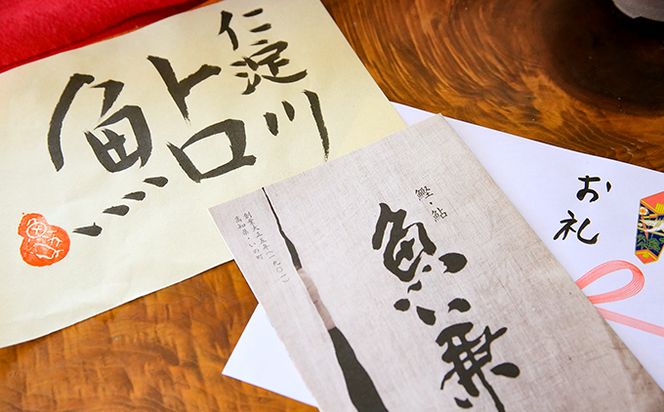 仁淀川
鮎
鰹・鮎
魚兼
創業大正五年
高知県・いの町
お礼